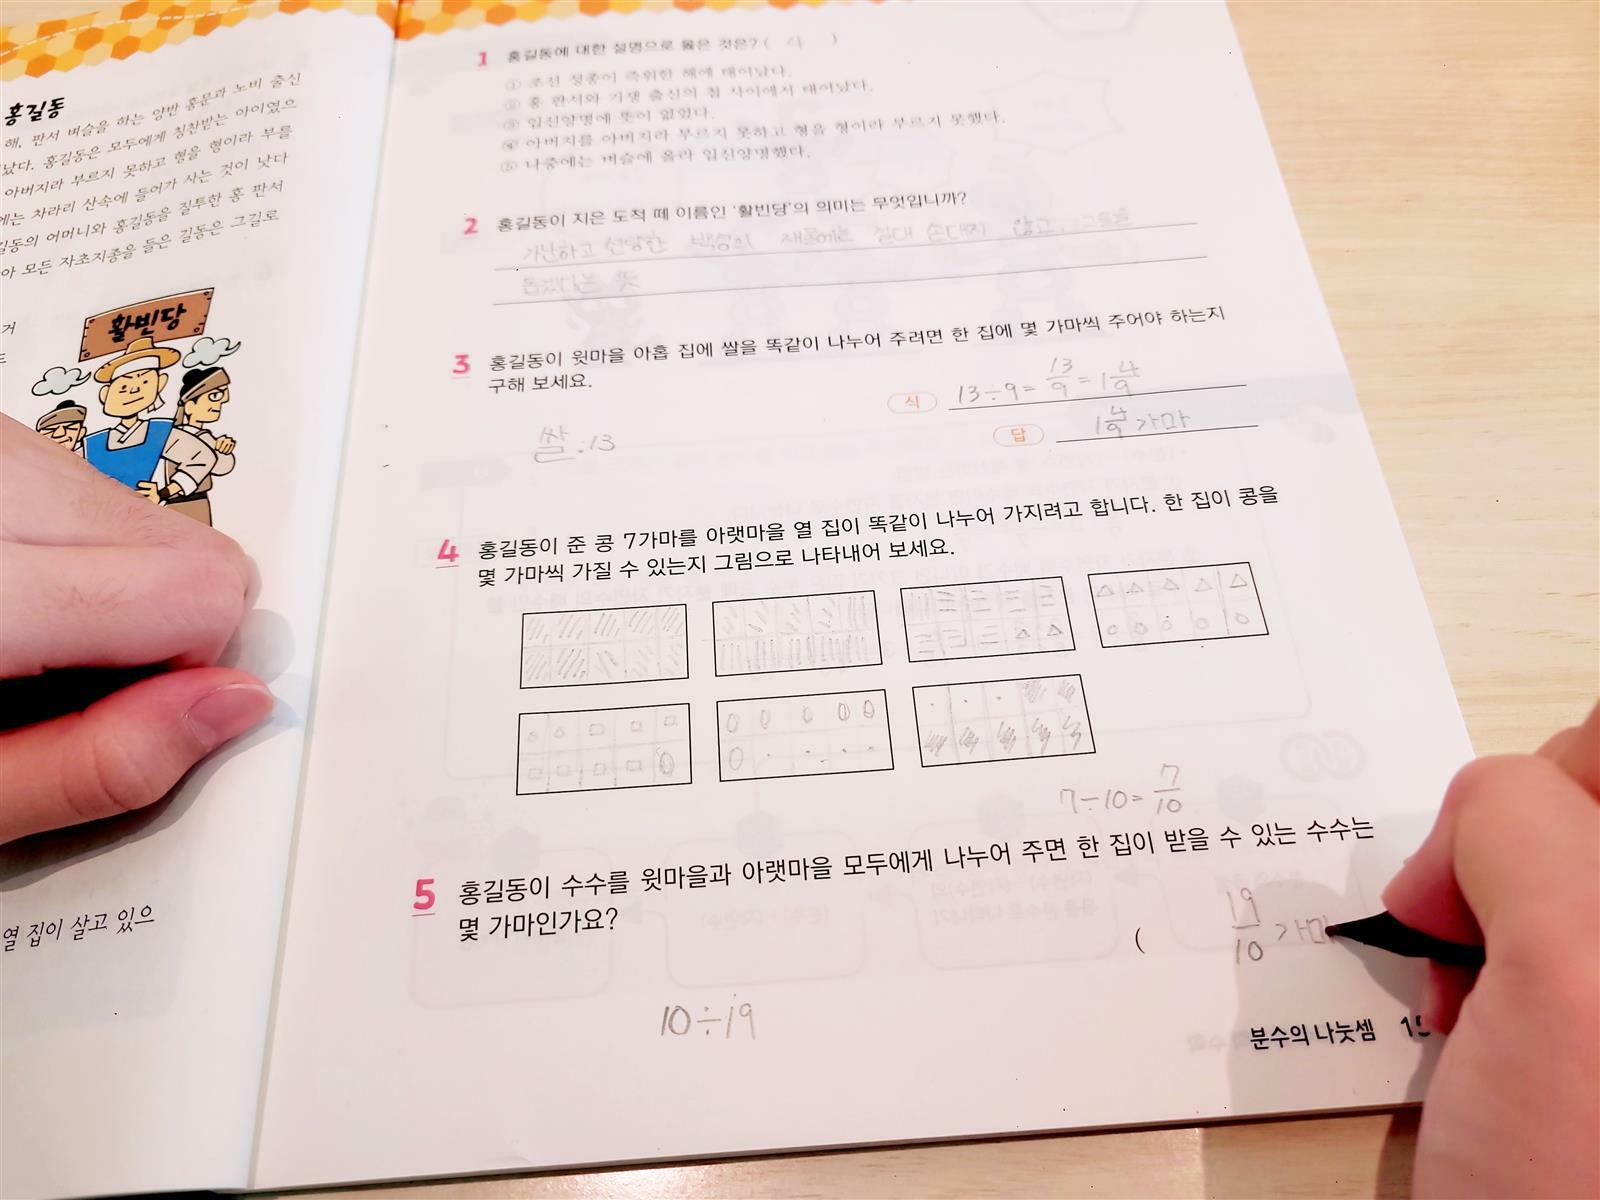 홍길동
해, 판서 벼슬을 하는 양반 홍문과 노비 출신
났다. 홍길동은 모두에게 칭찬받는 아이였으
아버지라 부르지 못하고 형을 형이라 부를
에는 차라리 산속에 들어가 사는 것이 낫다
길동의 어머니와 홍길동을 질투한 홍 판서
아 모든 자초지종을 들은 길동은 그길로
거
활빈당
열 집이 살고 있으
1 홍길동에 대한 설명으로 옳은 것은? ( 4 )
① 조선 성종이 즉위한 해에 태어났다.
② 홍 판서와 기생 출신의 첩 사이에서 태어났다.
③ 입신양명에 뜻이 없었다.
④ 아버지를 아버지라 부르지 못하고 형을 형이라 부르지 못했다.
⑤ 나중에는 벼슬에 올라 입신양명했다.
2 홍길동이 지은 도적 떼 이름인 '활빈당'의 의미는 무엇입니까?
가난하고 선량한 백성의 재물에는 절대 손대지 않고, 그들을
돕겠다는 뜻
3 홍길동이 윗마을 아홉 집에 쌀을 똑같이 나누어 주려면 한 집에 몇 가마씩 주어야 하는지
구해 보세요.
식 13÷9=13/9=1 4/9
쌀:13
답 1 4/9 가마
4 홍길동이 준 콩 7가마를 아랫마을 열 집이 똑같이 나누어 가지려고 합니다. 한 집이 콩을
몇 가마씩 가질 수 있는지 그림으로 나타내어 보세요.
7÷10=7/10
5 홍길동이 수수를 윗마을과 아랫마을 모두에게 나누어 주면 한 집이 받을 수 있는 수수는
몇 가마인가요?
( 19/10 가마
10÷19
분수의 나눗셈